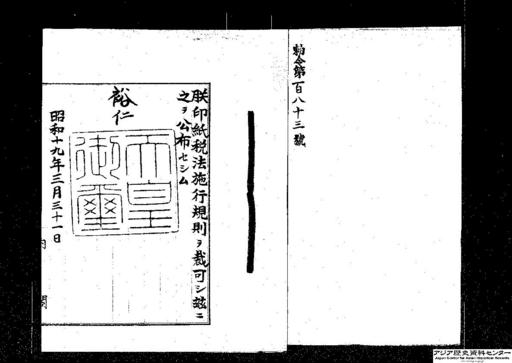 勅令第百八十三號
朕印紙税法施行規則ヲ裁可シ茲ニ
之ヲ公布セシム
裕仁
天皇
御璽
昭和十九年三月三十一日
内閣
アジア歴史資料センター
Japan Center for Asian Historical Records